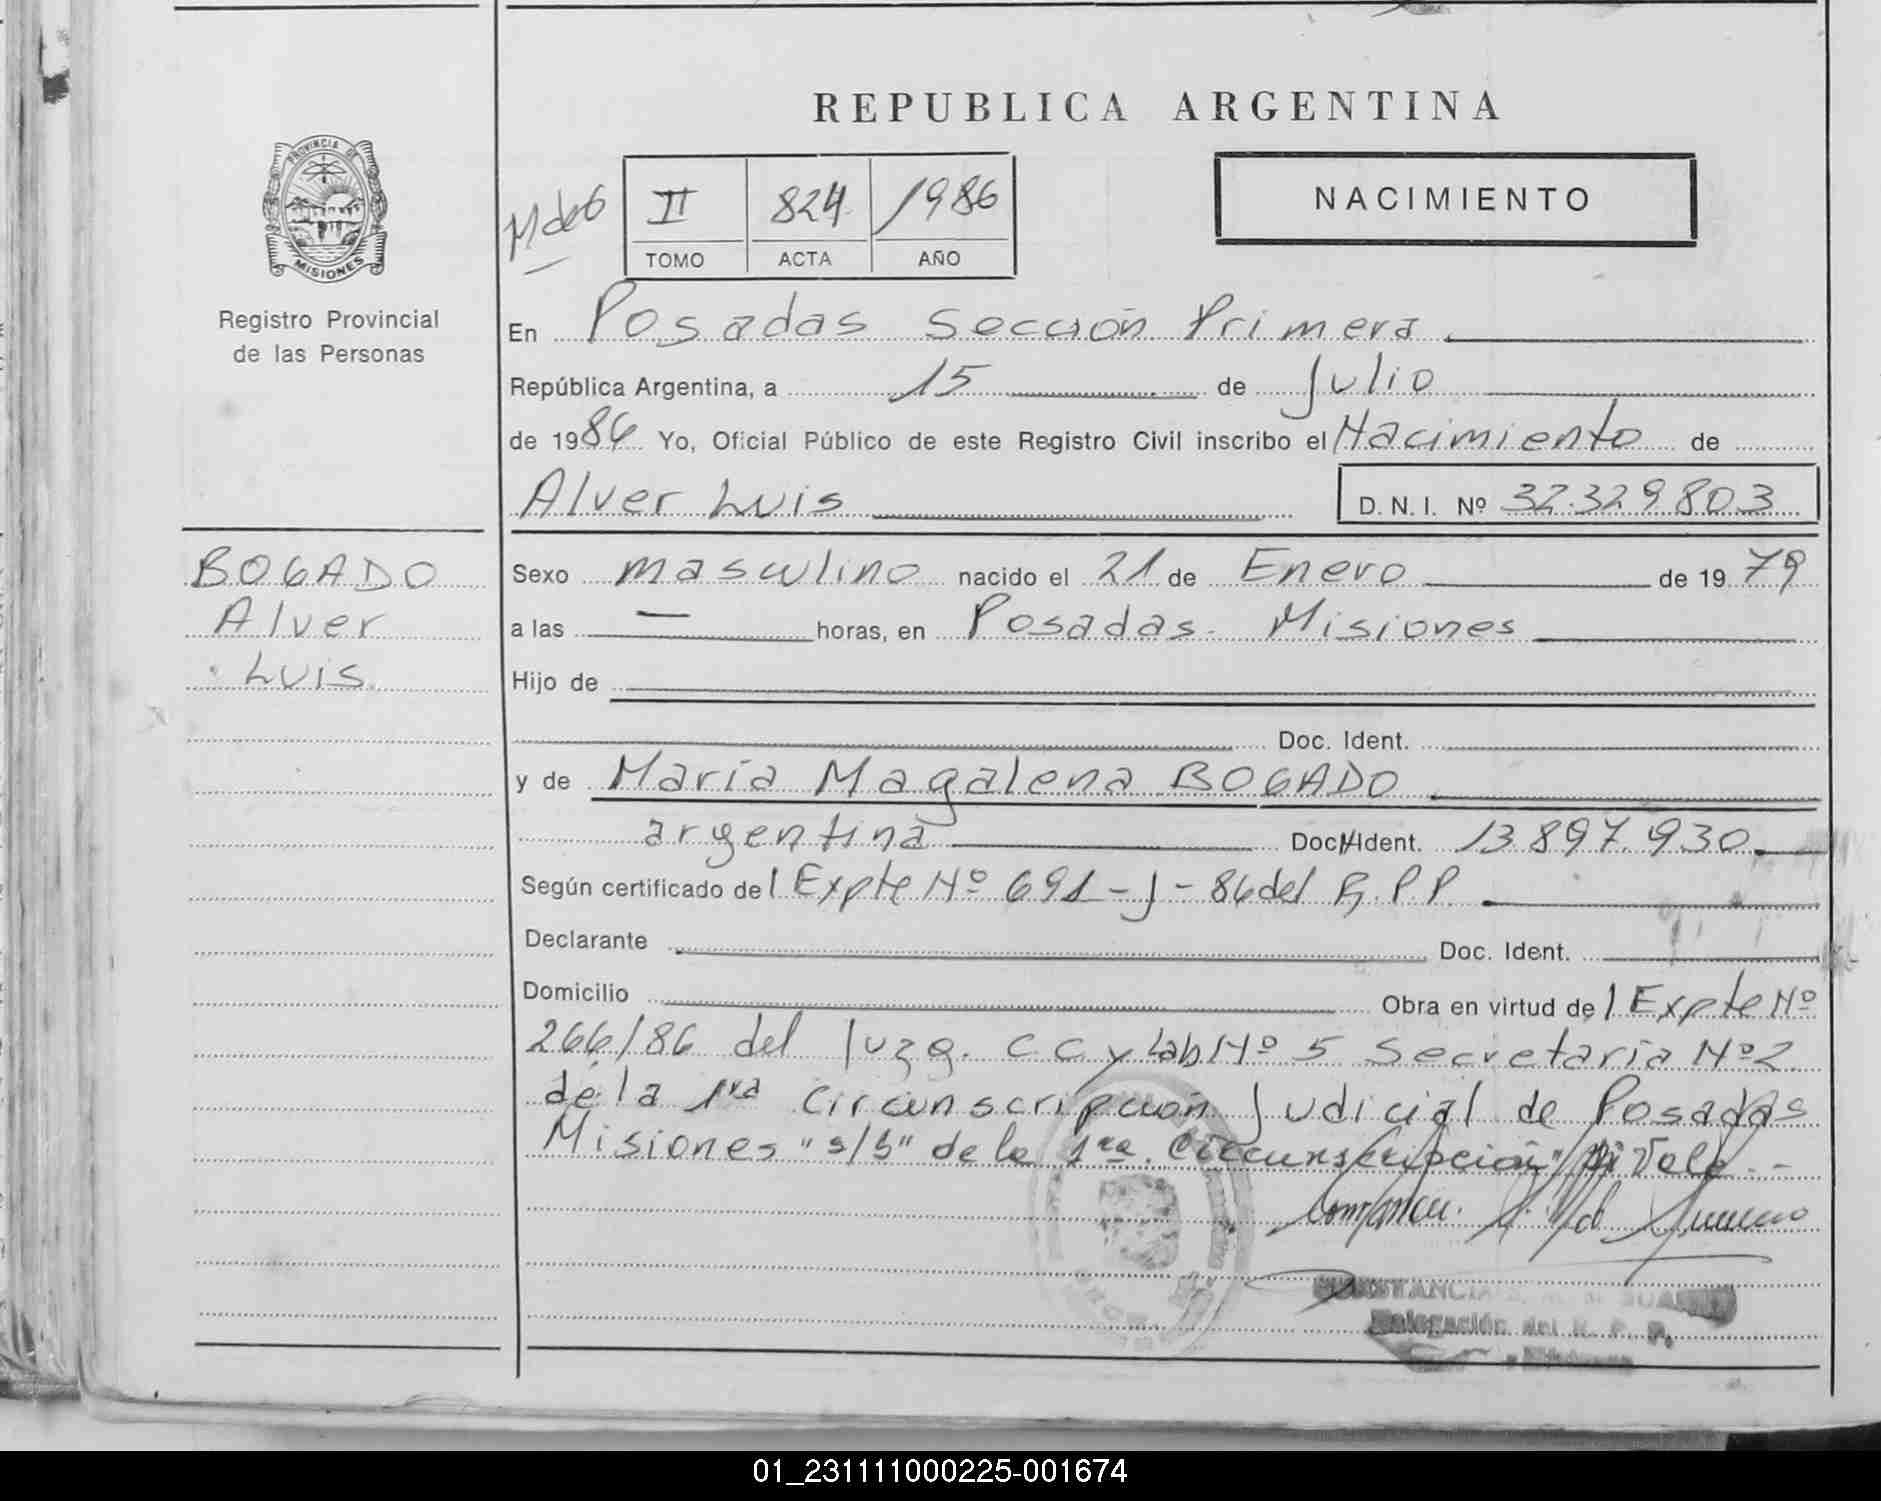 REPUBLICA ARGENTINA
PROVINCIA DE
MISIONES
Registro Provincial
de las Personas
II 824 1986
TOMO ACTA AÑO
NACIMIENTO
En Posadas Sección Primera
República Argentina, a 15 de Julio
de 1986 Yo, Oficial Público de este Registro Civil inscribo el Nacimiento de
Alver Luis D. N. I. Nº 32.329.803
BOGADO
Alver
Luis
Sexo masculino nacido el 21 de Enero de 1979
a las — horas, en Posadas - Misiones
Hijo de
Doc. Ident.
y de María Magalena BOGADO
argentina Doc. Ident. 13.897.930
Según certificado del Expte Nº 691-J-86 del R.P.P.
Declarante Doc. Ident.
Domicilio Obra en virtud del Expte Nº
266/86 del Juzg. C C y Lab Nº 5 Secretaría Nº 2
de la 1ra Circunscripción Judicial de Posadas
Misiones "s/b" de la 1ra. Circunscripción" Vale.-
Delegación del R. P. P.
01_231111000225-001674